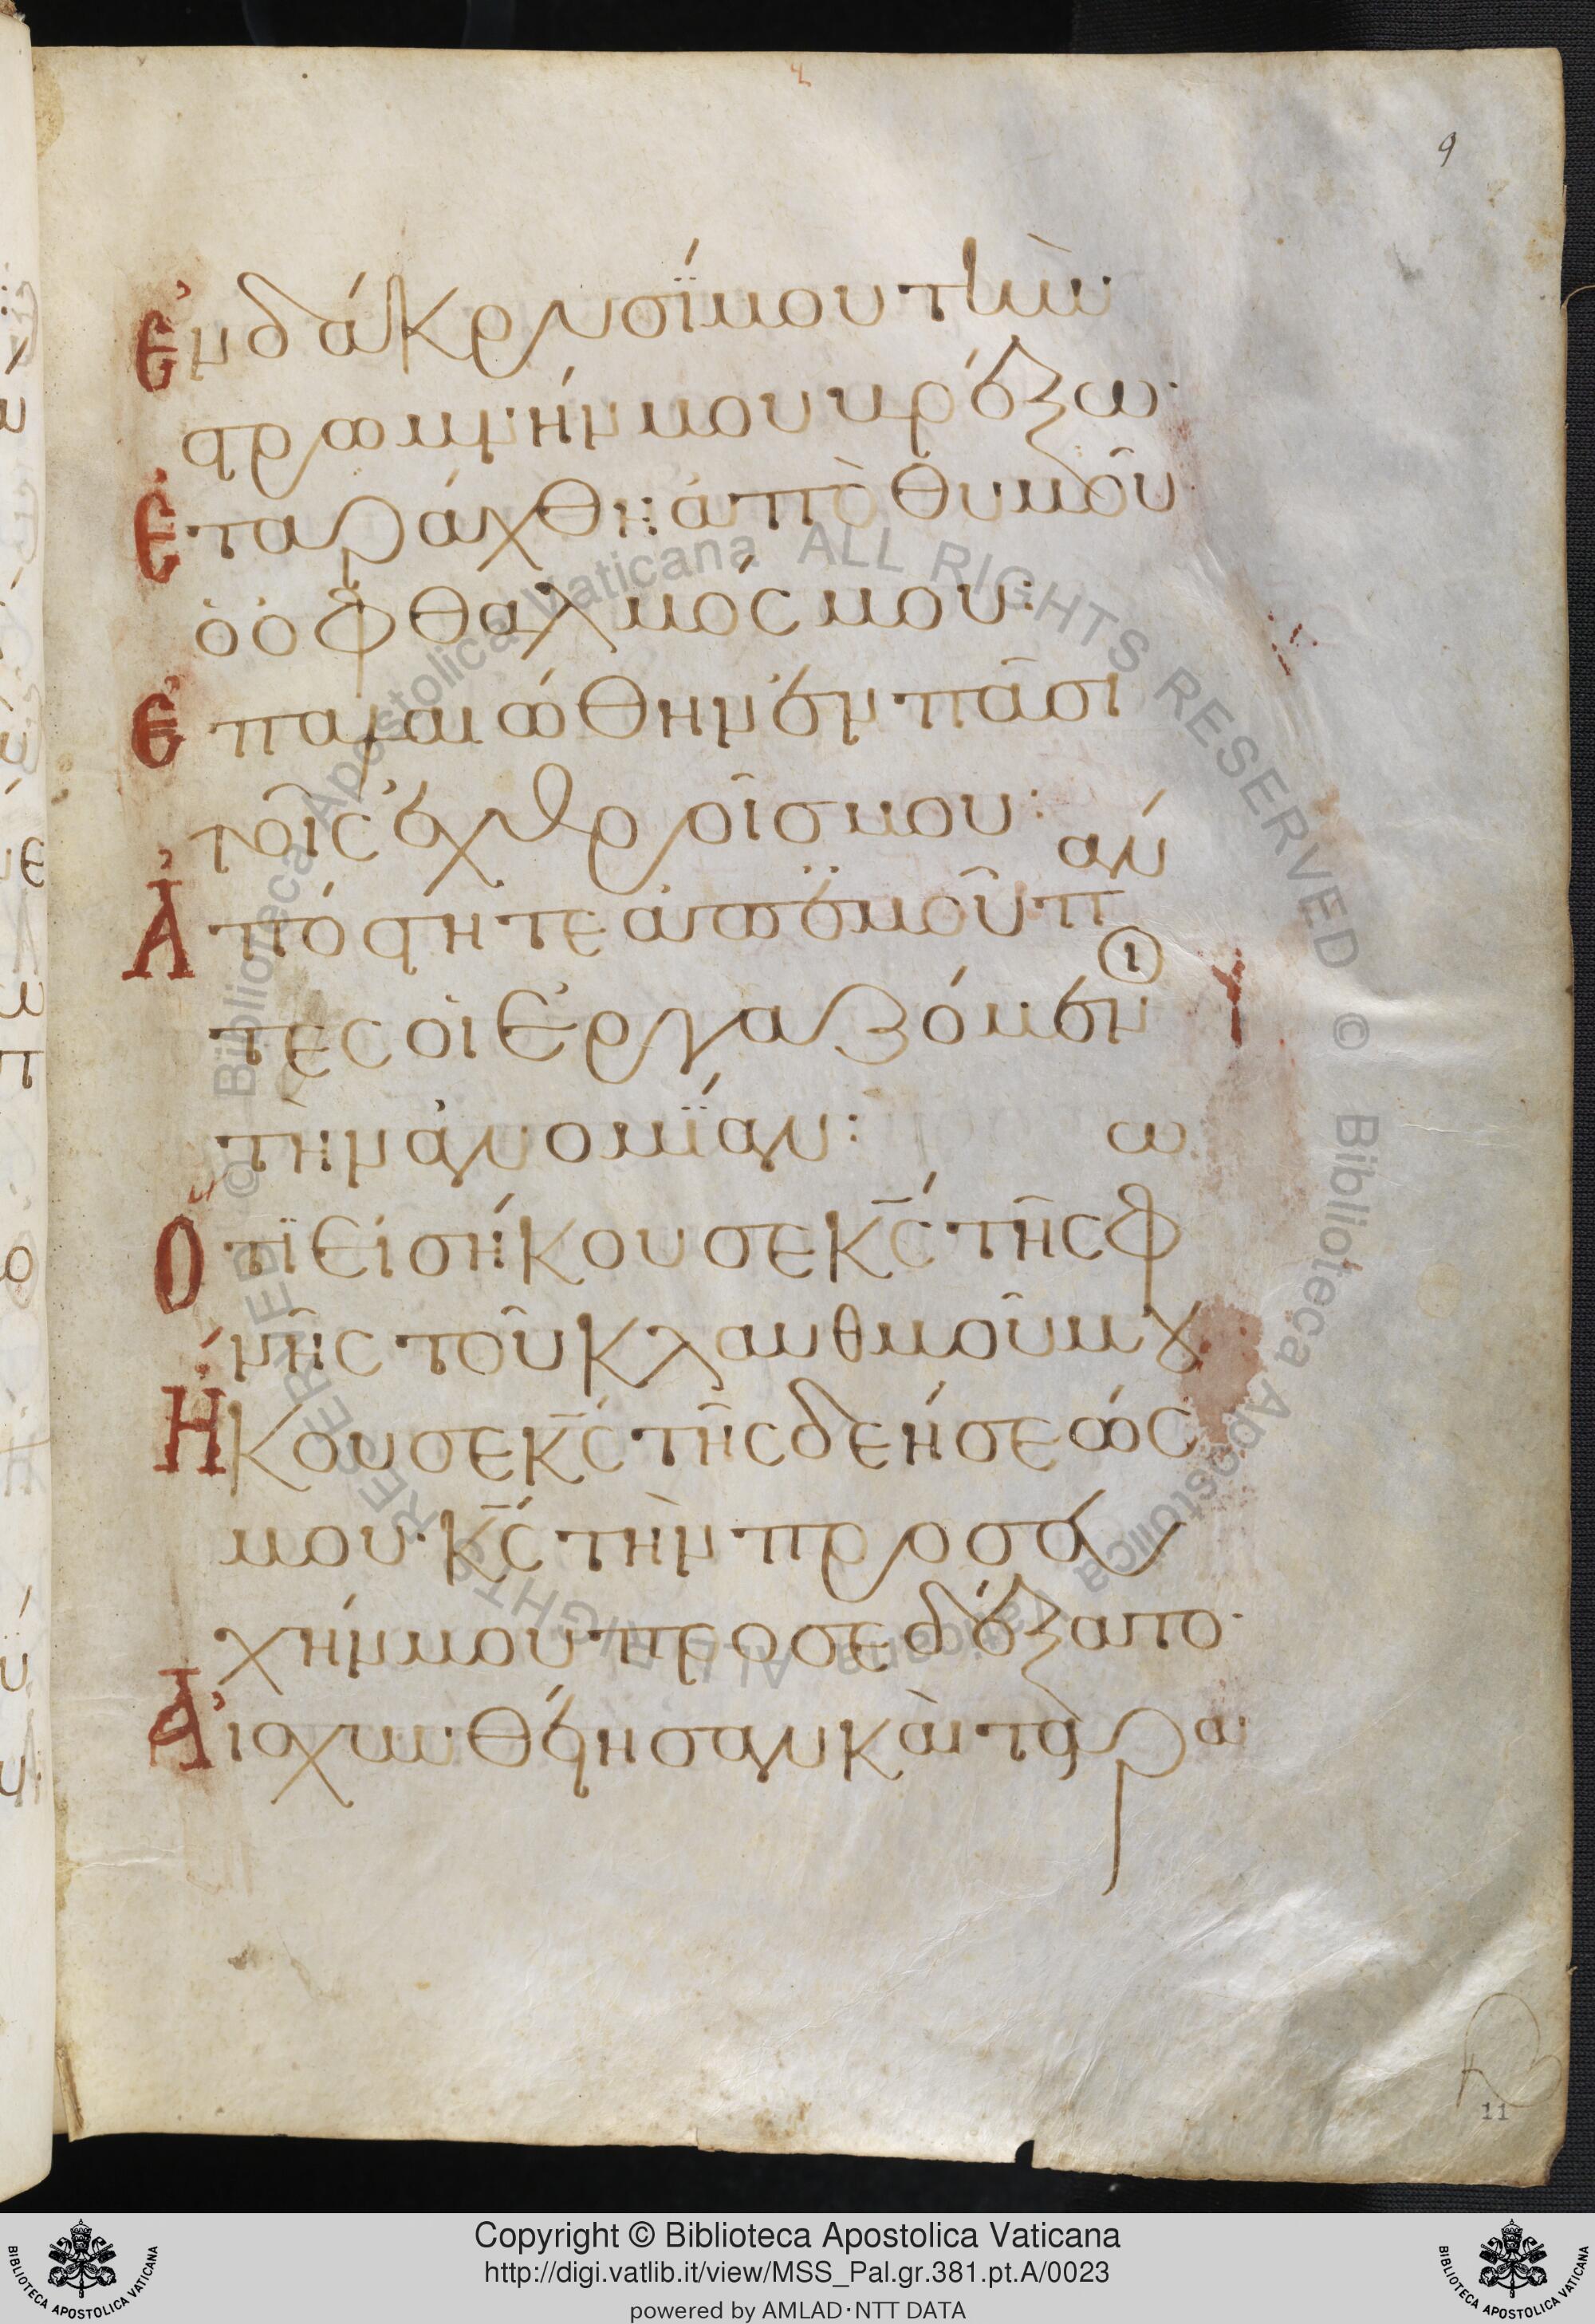 9
Ἐν δάκρυσί μου τὴν
στρωμνήν μου βρέξω·
Ἐταράχθη ἀπὸ θυμοῦ
ὁ ὀφθαλμός μου:
Ἐπαλαιώθην ἐν πᾶσι
τοῖς ἐχθροῖς μου:
Ἀπόστητε ἀπ' ἐμοῦ πάν
τες οἱ ἐργαζόμενοι
τὴν ἀνομίαν:
Ὅτι εἰσήκουσε κς τῆς φω
νῆς τοῦ κλαυθμοῦ μου
Ἤκουσε κς τῆς δεήσεώς
μου· κς τὴν προσευ
χήν μου προσεδέξατο·
Αἰσχυνθείησαν καὶ ταρα
11
© Biblioteca Apostolica Vaticana ALL RIGHTS RESERVED © Biblioteca Apostolica Vaticana ALL RIGHTS RESERVED
Copyright © Biblioteca Apostolica Vaticana
http://digi.vatlib.it/view/MSS_Pal.gr.381.pt.A/0023
powered by AMLAD·NTT DATA
BIBLIOTECA APOSTOLICA VATICANA
BIBLIOTECA APOSTOLICA VATICANA